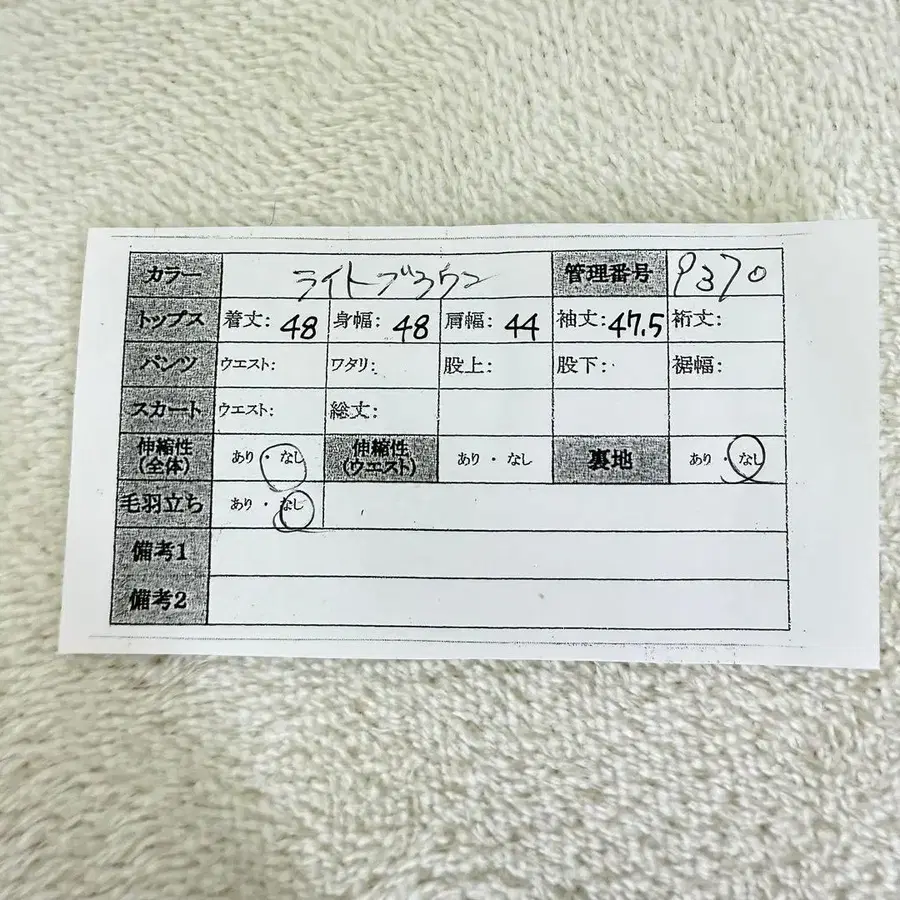 カラー ライトブラウン 管理番号 9370
トップス 着丈: 48 身幅: 48 肩幅: 44 袖丈: 47.5 裄丈:
パンツ ウエスト: ワタリ: 股上: 股下: 裾幅:
スカート ウエスト: 総丈:
伸縮性
(全体) あり・なし 伸縮性
(ウエスト) あり・なし 裏地 あり・なし
毛羽立ち あり・なし
備考1
備考2